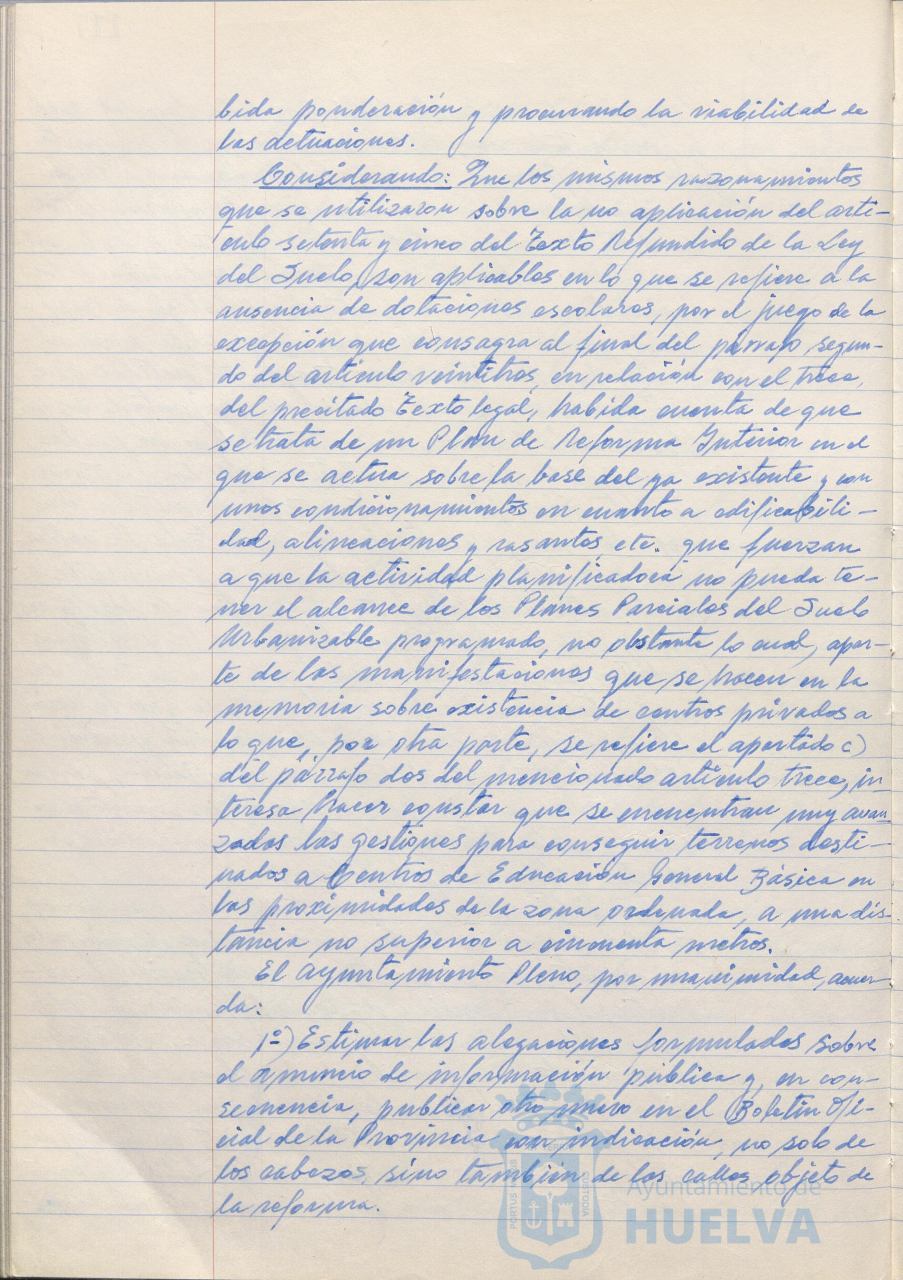 bida ponderación y procurando la viabilidad de
las actuaciones.
Considerando: Que los mismos razonamientos
que se utilizaron sobre la no aplicación del arti-
culo setenta y cinco del Texto Refundido de la Ley
del Suelo, son aplicables en lo que se refiere a la
ausencia de dotaciones escolares, por el juego de la
excepción que consagra al final del párrafo segun-
do del artículo veintitres, en relación con el trece,
del precitado Texto legal, habida cuenta de que
se trata de un Plan de Reforma Interior en el
que se actua sobre la base del ya existente y con
unos condicionamientos en cuanto a edificabili-
dad, alineaciones y rasantes, etc. que fuerzan
a que la actividad planificadora no pueda te-
ner el alcance de los Planes Parciales del Suelo
Urbanizable programado, no obstante lo cual, apar-
te de las manifestaciones que se hacen en la
memoria sobre existencia de centros privados a
lo que, por otra parte, se refiere el apartado c)
del párrafo dos del mencionado artículo trece, in
teresa hacer constar que se encuentran muy avan-
zadas las gestiones para conseguir terrenos desti-
nados a Centros de Educación General Básica en
las proximidades de la zona ordenada, a una dis-
tancia no superior a cincuenta metros.
El Ayuntamiento Pleno, por unanimidad, acuer-
da:
1º) Estimar las alegaciones formuladas sobre
el anuncio de información pública y, en con-
secuencia, publicar otro nuevo en el Boletín Ofi-
cial de la Provincia con indicación, no solo de
los cabezos, sino también de las calles objeto de
la reforma.
PORTUS CUSTODIA
Ayuntamiento de
HUELVA